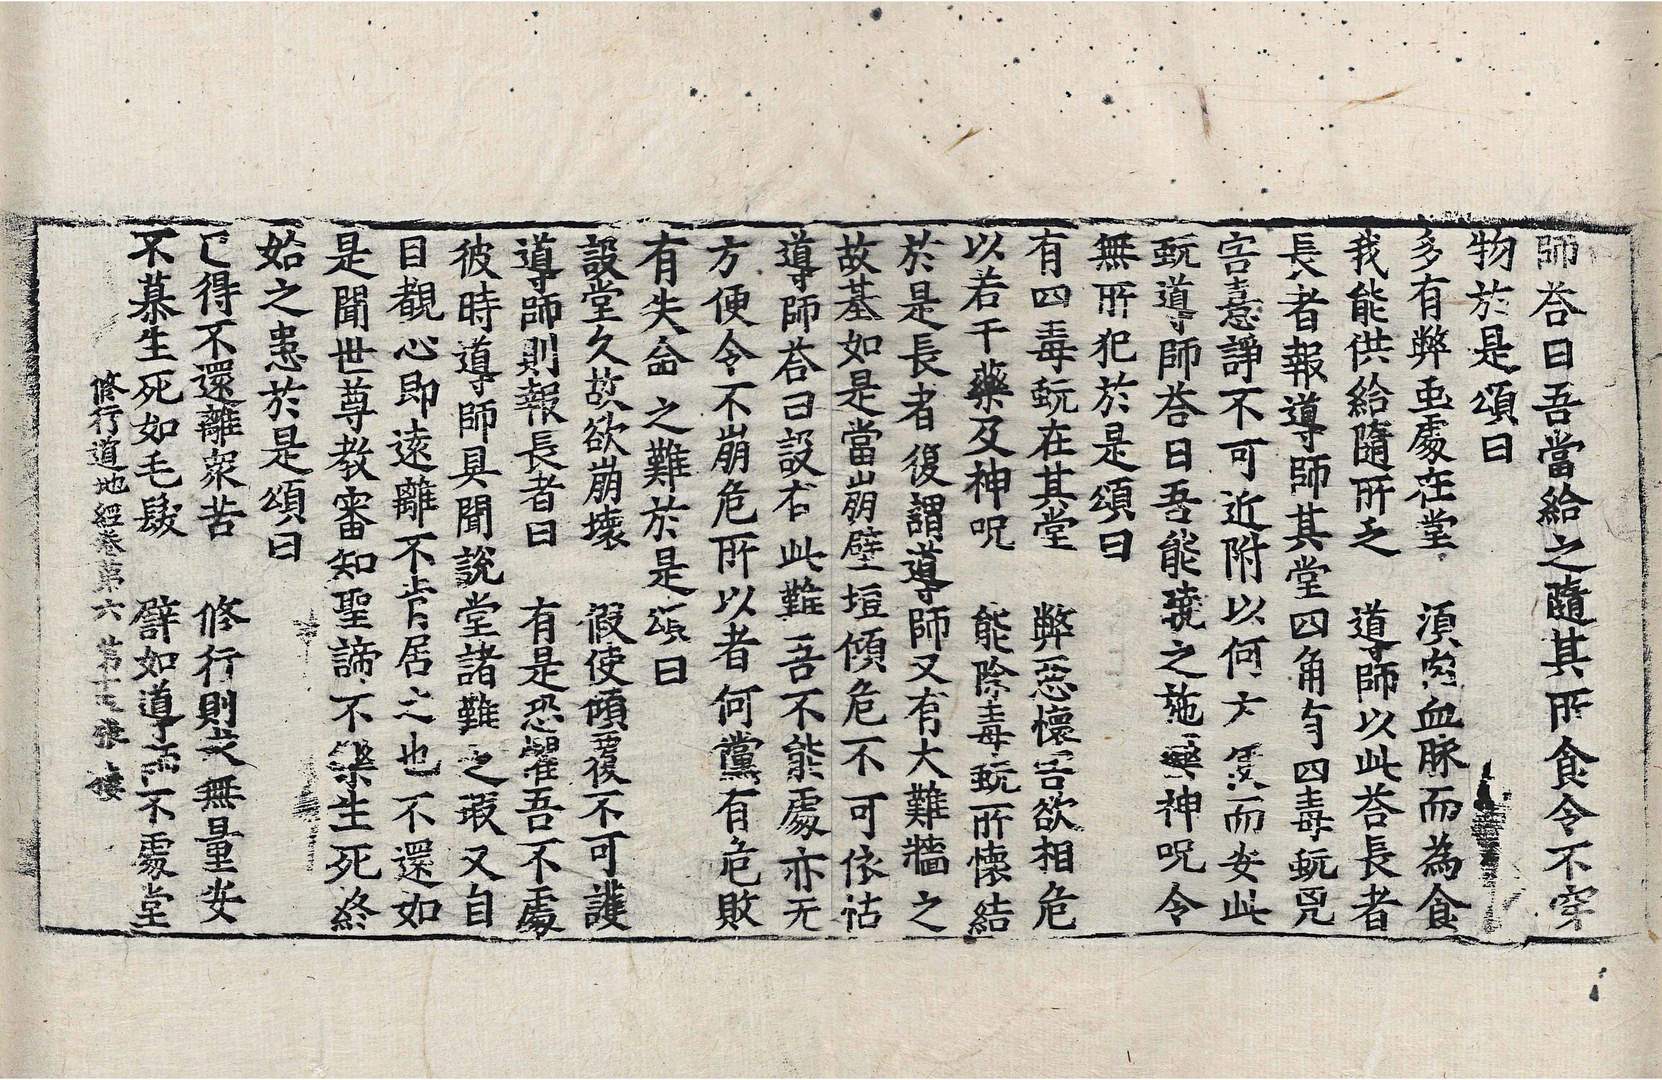 師荅曰吾當給之隨其所食令不穿
物於是頌曰
多有弊虫處在堂　湏肉血脉而為食
我能供給隨所乏　導師以此荅長者
長者報導師其堂四角有四毒蚖兇
害憙諍不可近附以何方便而安此
蚖導師荅曰吾能曉之施藥神呪令
無所犯於是頌曰
有四毒蚖在其堂　弊惡懷害欲相危
以若干藥及神呪　能除毒蚖所懷結
於是長者復謂導師又有大難牆之
故基如是當崩壁垣傾危不可依怙
導師荅曰設有此難吾不能處亦无
方便令不崩危所以者何黨有危敗
有失命之難於是頌曰
設堂久故欲崩壞　假使傾覆不可護
導師則報長者曰　有是恐懼吾不處
彼時導師具聞說堂諸難之瑕又自
目覩心即遠離不肯居之也不還如
是聞世尊教審知聖諦不樂生死終
始之患於是頌曰
已得不還離衆苦　修行則求無量安
不慕生死如毛髮　譬如導師不處堂
修行道地經卷第六　第十　張　樓